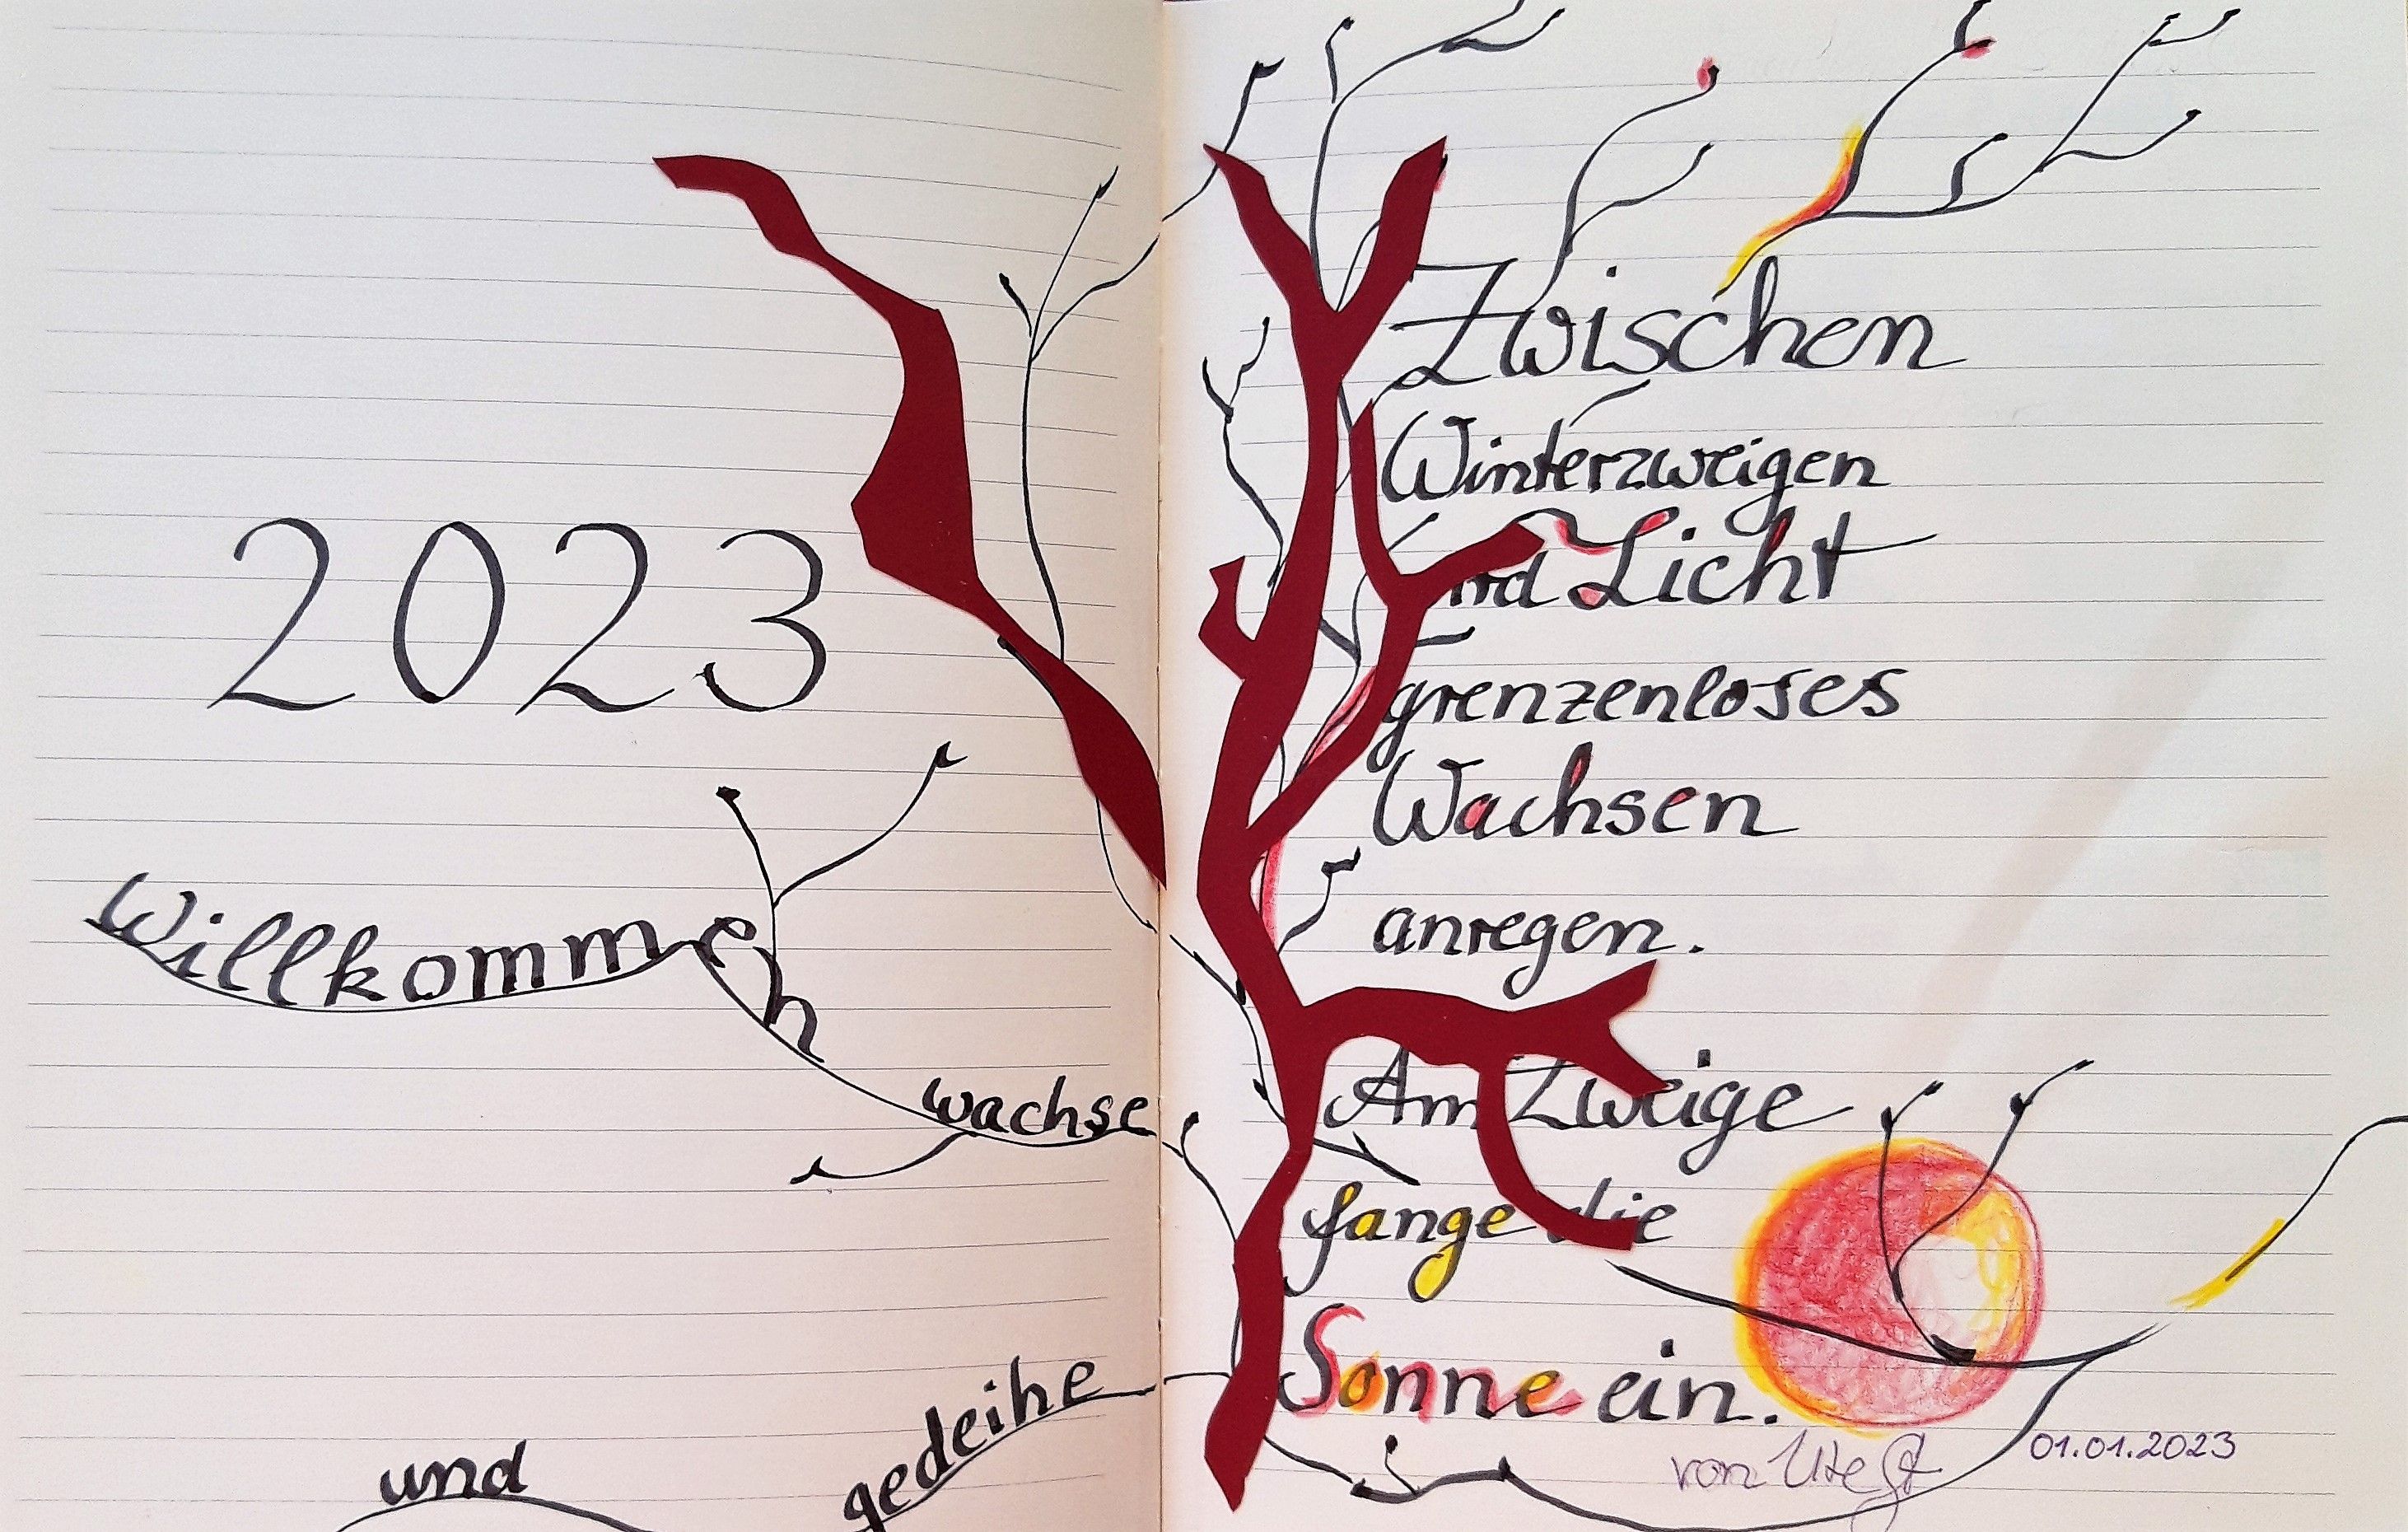 2023
Willkommen
wachse
und
gedeihe
Zwischen
Winterzweigen
und Licht
grenzenloses
Wachsen
anregen.
Am Zweige
fange die
Sonne ein.
von Ute
01.01.2023